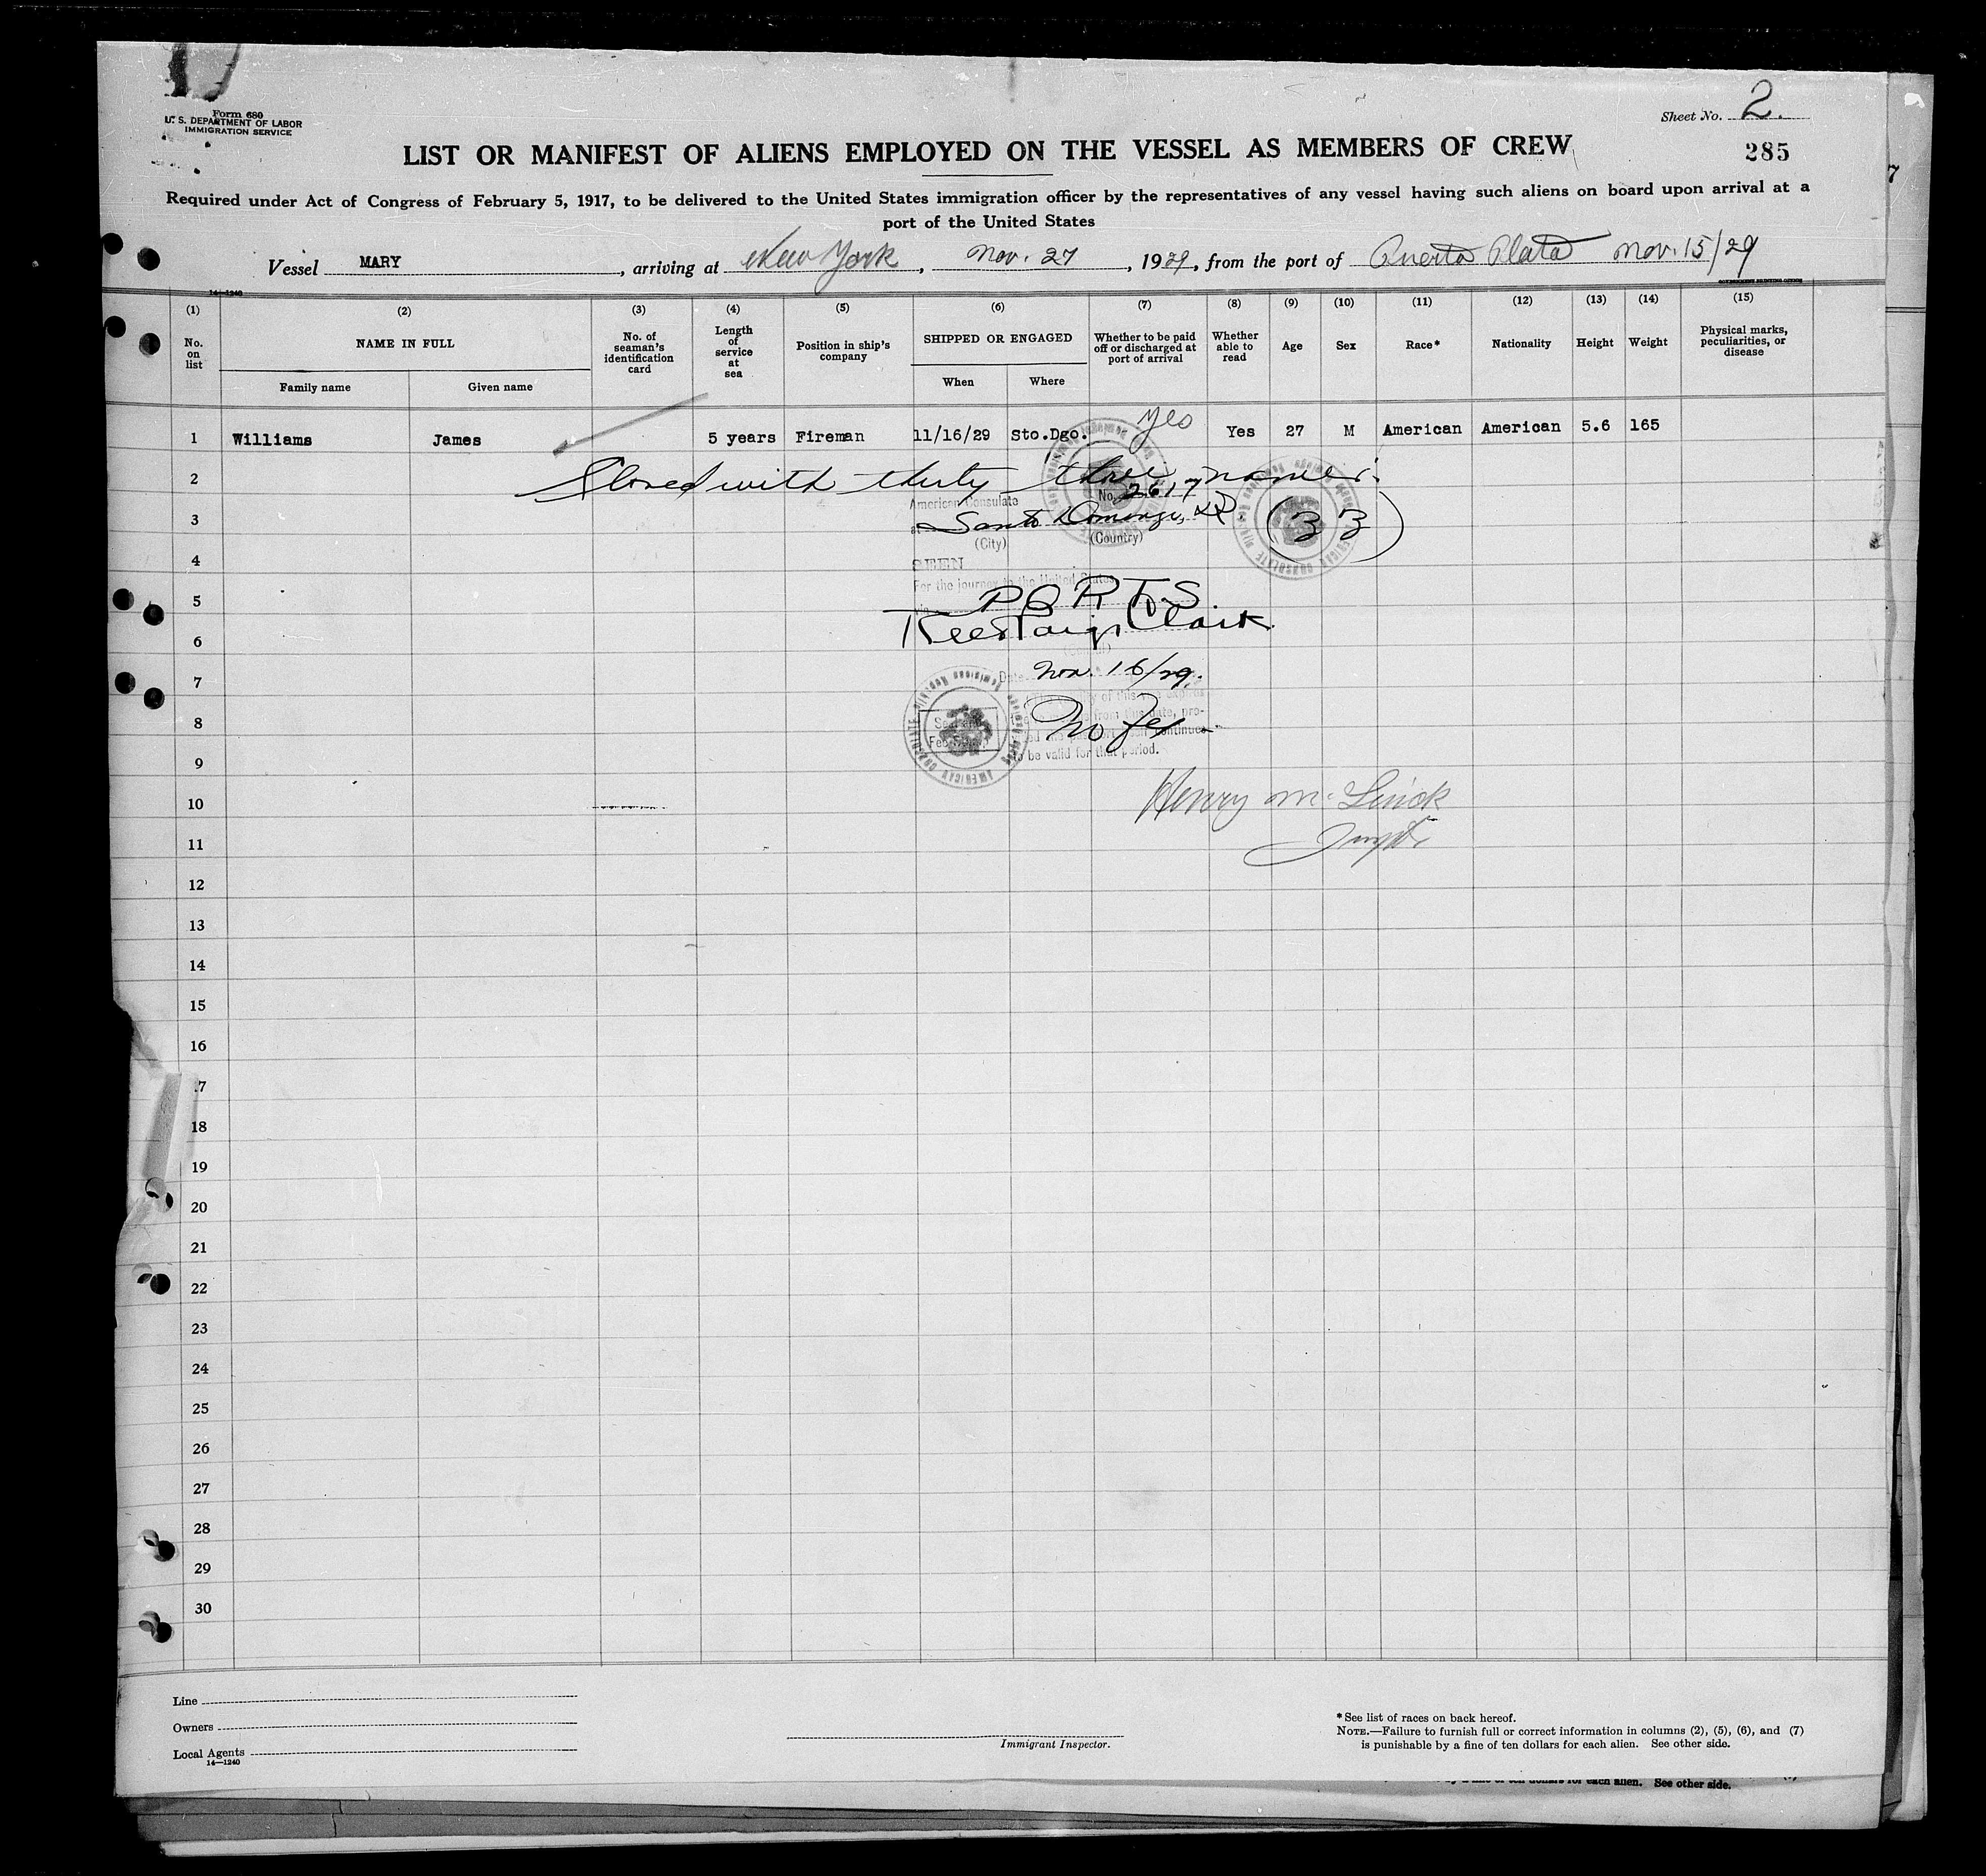 Form 680
U. S. DEPARTMENT OF LABOR
IMMIGRATION SERVICE
Sheet No. 2.
285
LIST OR MANIFEST OF ALIENS EMPLOYED ON THE VESSEL AS MEMBERS OF CREW
Required under Act of Congress of February 5, 1917, to be delivered to the United States immigration officer by the representatives of any vessel having such aliens on board upon arrival at a
port of the United States
Vessel MARY, arriving at New York, Nov. 27, 1929, from the port of Puerto Plata Nov. 15/29
14—1240
GOVERNMENT PRINTING OFFICE
(1) (2) (3) (4) (5) (6) (7) (8) (9) (10) (11) (12) (13) (14) (15)
No. on list
NAME IN FULL
Family name
Given name
No. of seaman's identification card
Length of service at sea
Position in ship's company
SHIPPED OR ENGAGED
When
Where
Whether to be paid off or discharged at port of arrival
Whether able to read
Age
Sex
Race*
Nationality
Height
Weight
Physical marks, peculiarities, or disease
1 Williams James 5 years Fireman 11/16/29 Sto.Dgo. Yes Yes 27 M American American 5.6 165
2 Closed with thirty three names.
No. 2617
American Consulate
3 at Santo Domingo, DR (33)
(City) (Country)
4 SEEN
For the journey to the United States
5 via PORTS.
6 Clark
(Consul)
7 Date Nov. 16/29.
from this date, pro-
8 No fee
continues
to be valid for that period.
Seal and
Fee Stamp
AMERICAN CONSULATE
9
10 Henry M.
11
12
13
14
15
16
17
18
19
20
21
22
23
24
25
26
27
28
29
30
Line
Owners
Local Agents
14—1240
Immigrant Inspector.
*See list of races on back hereof.
NOTE.—Failure to furnish full or correct information in columns (2), (5), (6), and (7)
is punishable by a fine of ten dollars for each alien. See other side.
by a fine of ten dollars for each alien. See other side.